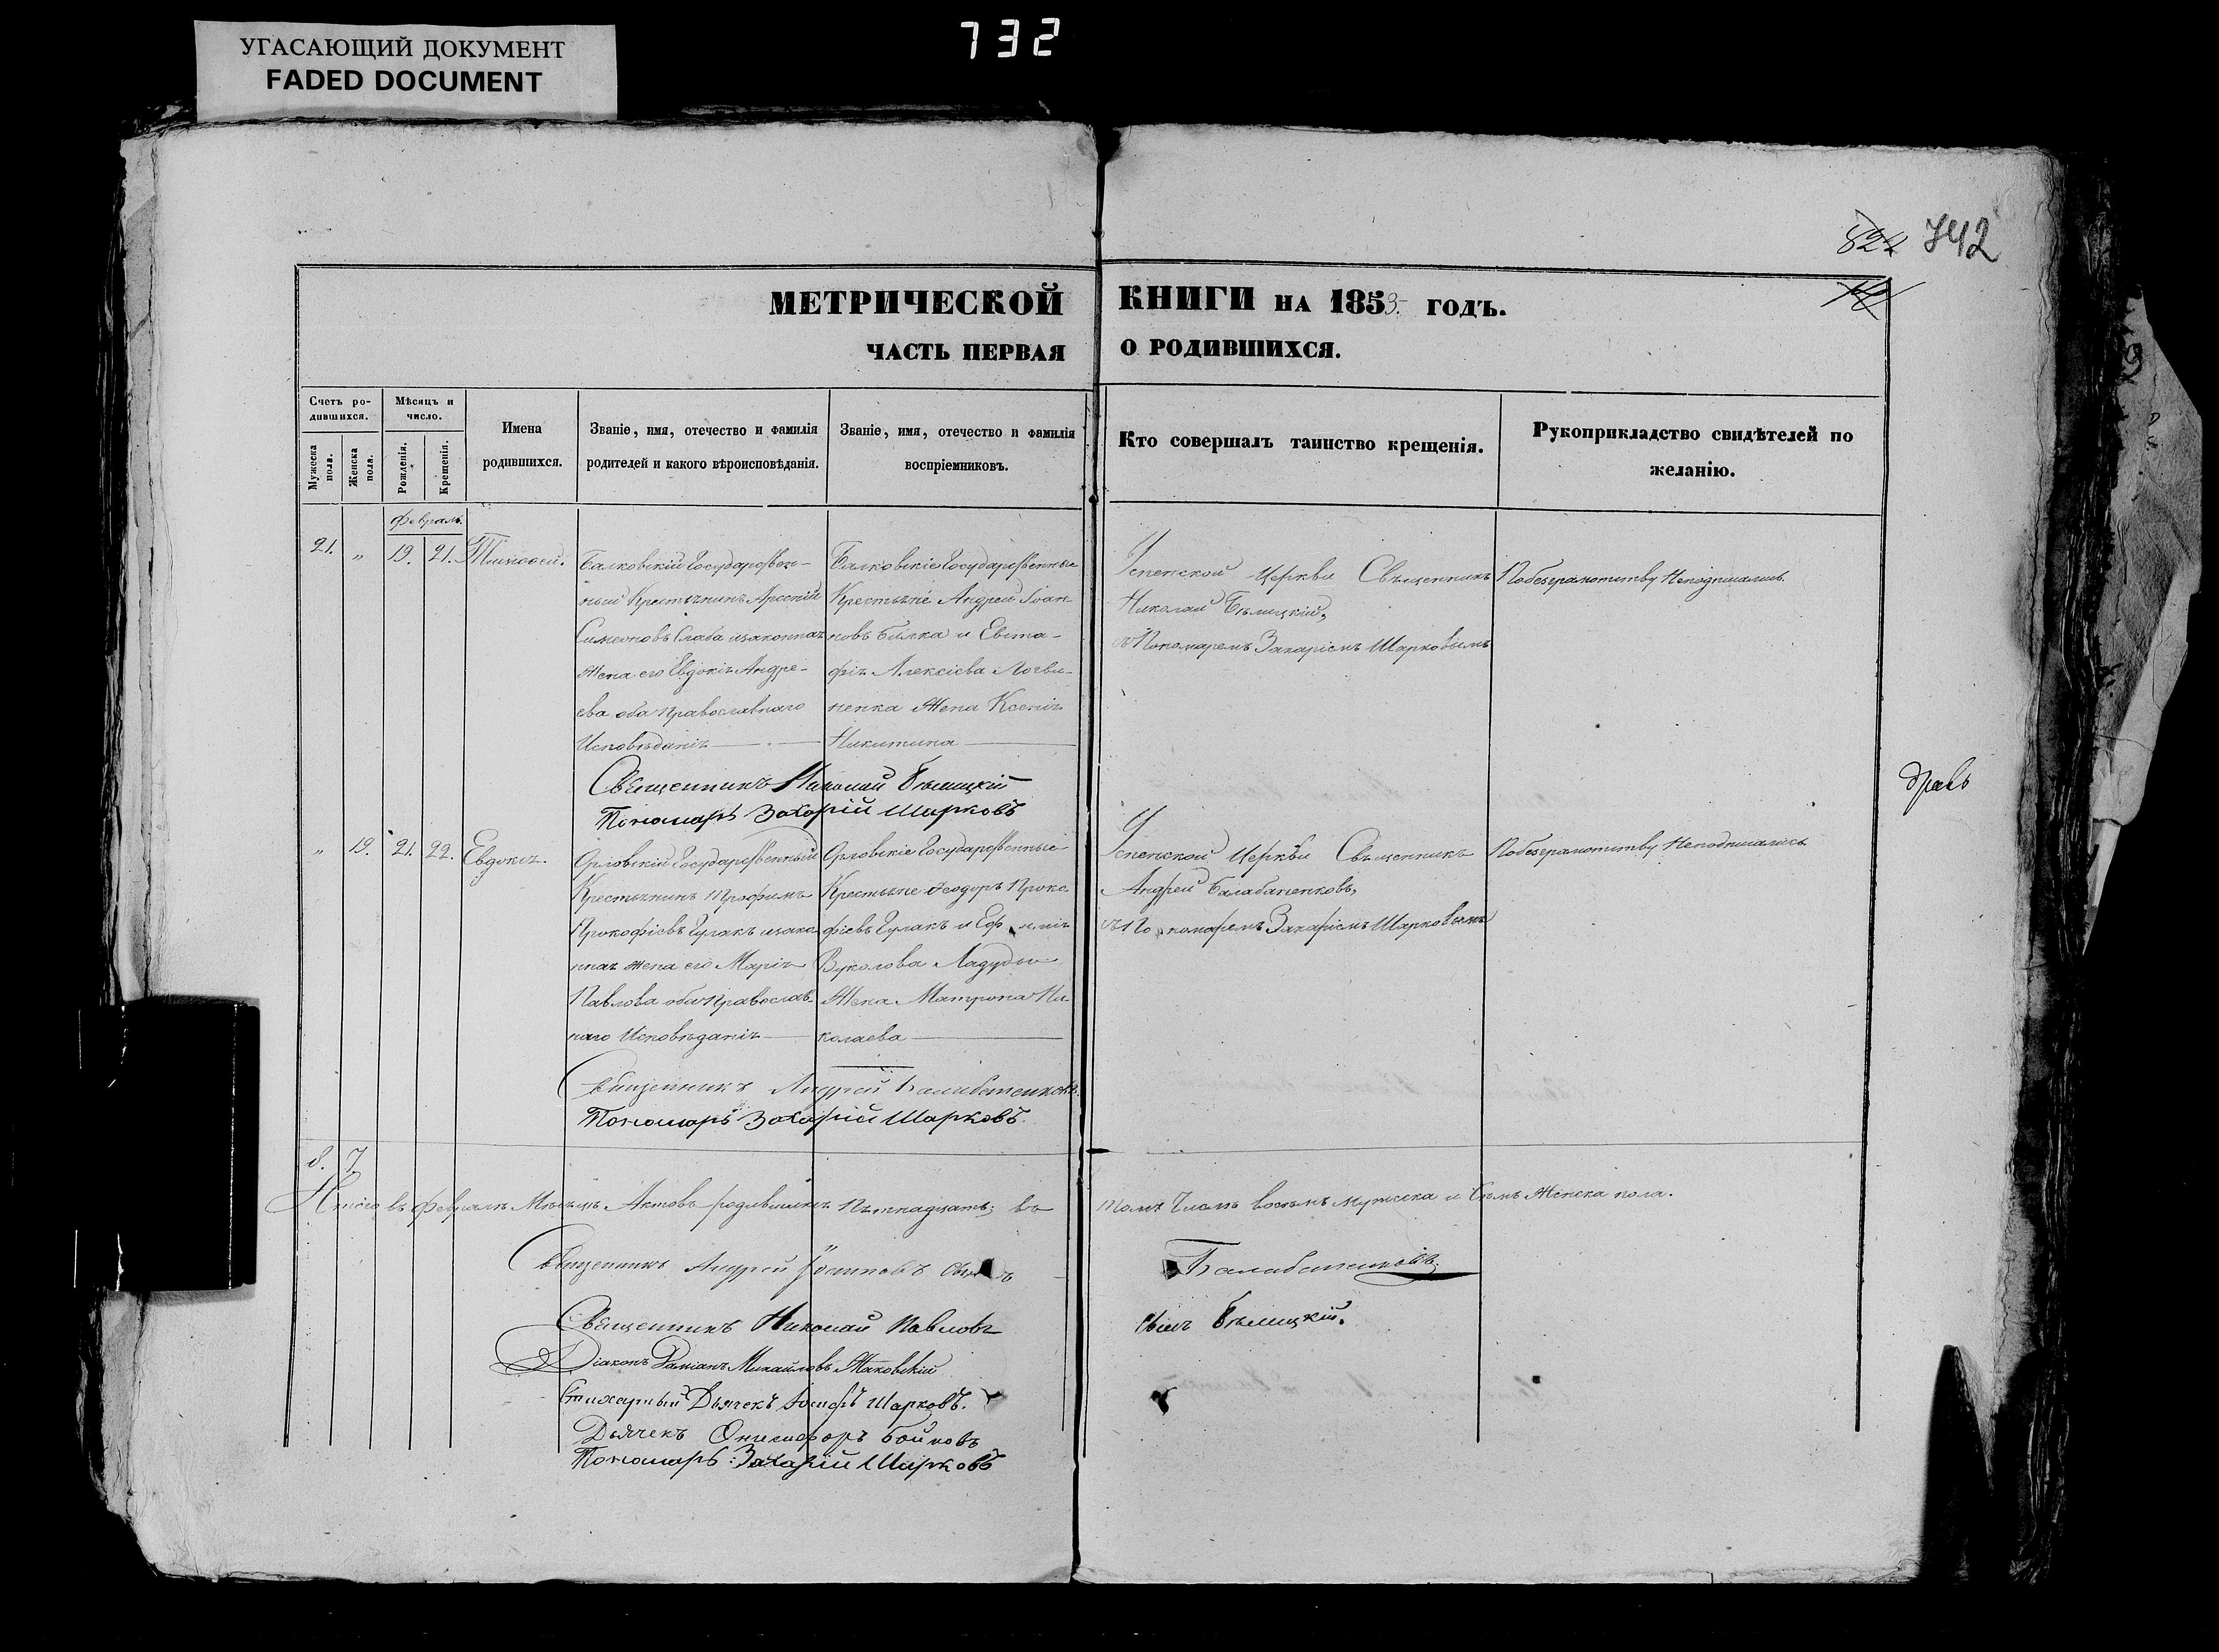 УГАСАЮЩИЙ ДОКУМЕНТ
FADED DOCUMENT
732
824 742
МЕТРИЧЕСКОЙ КНИГИ НА 1853 ГОДЪ.
ЧАСТЬ ПЕРВАЯ О РОДИВШИХСЯ.
Счетъ ро-
дившихся.
Мужеска пола.
Женска пола.
Мѣсяцъ и
число.
Рожденія.
Крещенія.
Имена
родившихся.
Званіе, имя, отечество и фамилія
родителей и какого вѣроисповѣданія.
Званіе, имя, отечество и фамилія
воспріемниковъ.
Кто совершалъ таинство крещенія.
Рукоприкладство свидѣтелей по
желанію.
Февраль.
21. „ 19. 21. Тимофей.
Балковскій Государствен-
ный Крестьянинъ Арсеній
Симеоновъ Слаба изаконная
Жена его Евдокія Андре-
ева оба православнаго
Исповѣданія
Балковскіе Государственные
Крестьяне Андрей Іоан-
новъ Билка и Евста-
фія Алексіева Логви-
ненка Жена Ксенія
Никитина
Успенской Церкви Священникъ
Николай Бѣлицкій,
съ Пономаремъ Захаріемъ Шарковымъ
Побезграмотству Неподписались.
Священникъ Николай Бѣлицкій
Пономарь Захарій Шарковъ
„ 19. 21. 22. Евдокія.
Орловскій Государственный
Крестьянинъ Трофимъ
Прокофіевъ Гулакъ изако-
нная жена его Марія
Павлова оба Православ-
наго Исповѣданія
Орловскіе Государственные
Крестьяне Феодоръ Проко-
фіевъ Гулакъ и
Вуколова
Жена Матрона Ни-
колаева
Успенской Церкви Священникъ
Андрей Балабаненковъ,
съ Пономаремъ Захаріемъ Шарковымъ
Побезграмотству Неподписались
драв
Священникъ Андрей Балабаненковъ.
Пономарь Захарій Шарковъ.
8. 7.
Итого въ Февралѣ Мѣсяцѣ Актовъ родившихся Пятнадцать; въ томъ Числѣ восемь мужеска и семь Женска пола.
Священникъ Андрей Іосиповъ Балабаненковъ.
Священникъ Николай Павловъ сынъ Бѣлицкій.
Діаконъ Даміанъ Михайловъ Маковскій
Стихарный Дьячекъ Іосифъ Шарковъ.
Дьячекъ Онисифоръ Бойковъ
Пономарь: Захарій Шарковъ